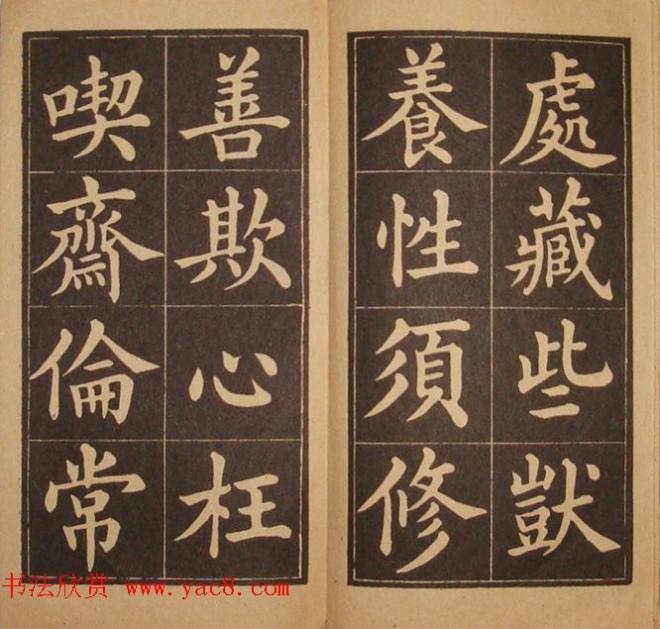 處藏些獃
養性須修
善欺心枉
喫齋倫常
书法欣赏 www.yac8.com